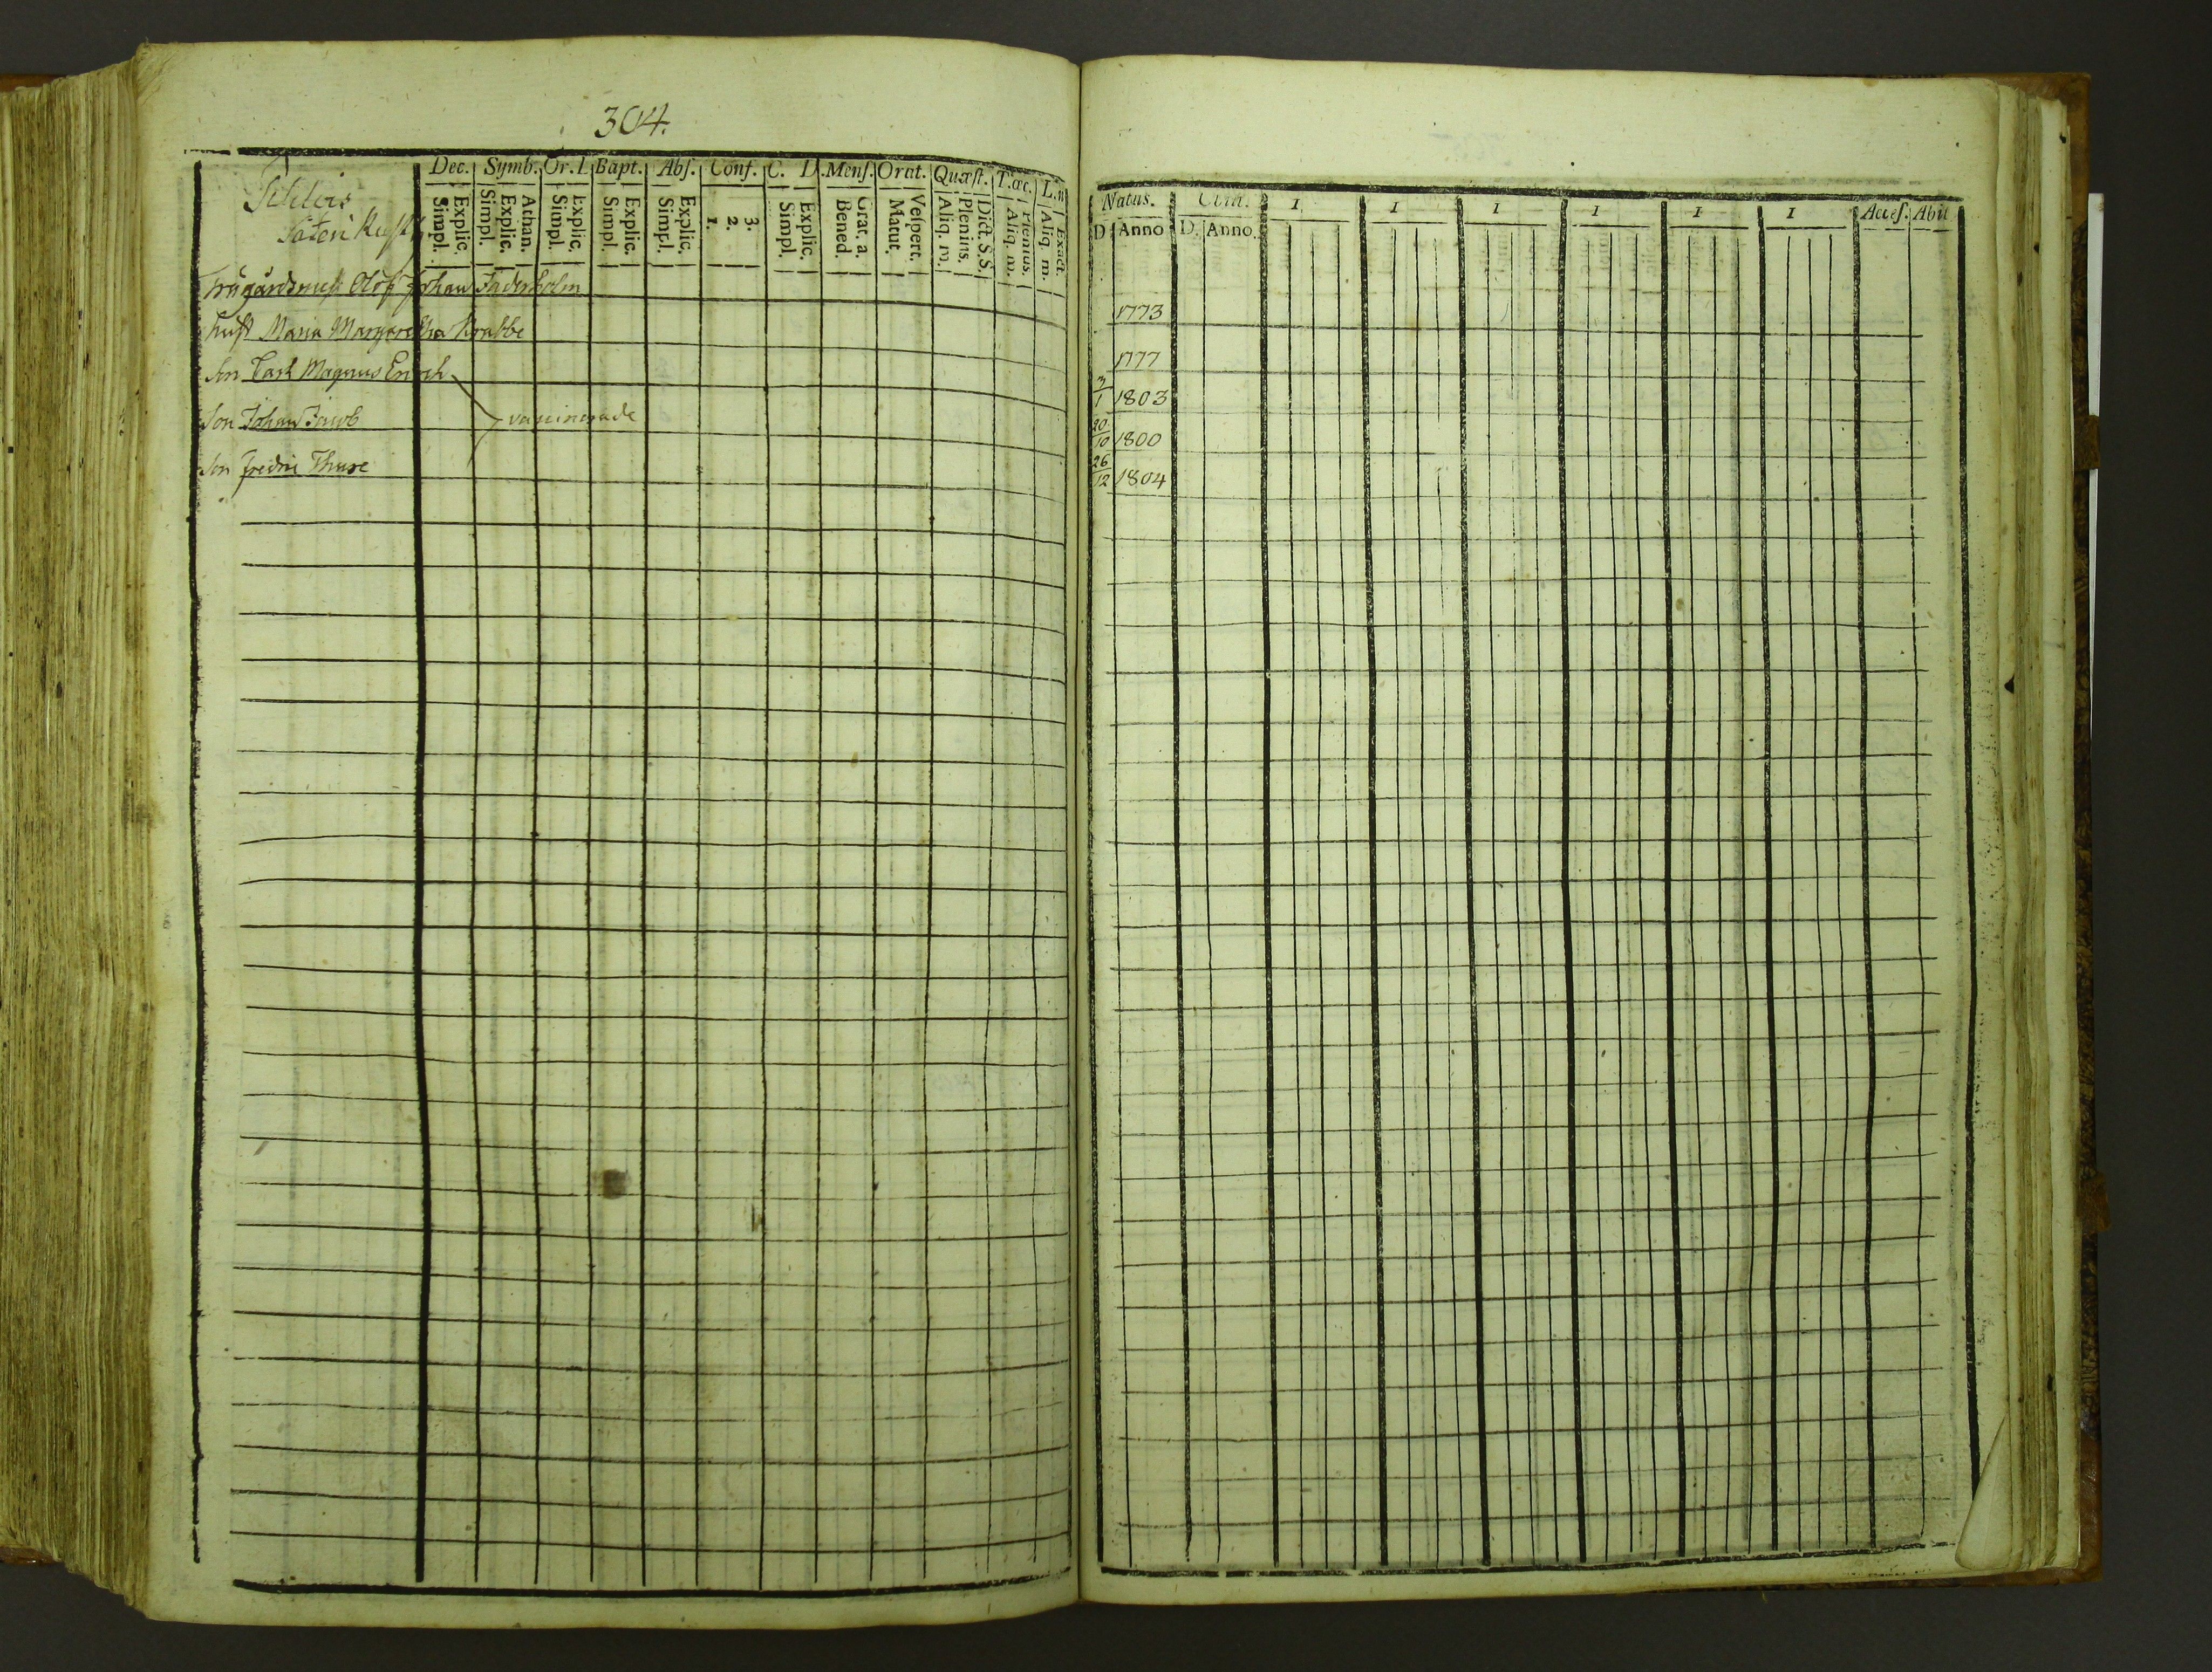 304.
Dec. Symb. Or. Bapt. Abſ. Conf. C. D. Menſ. Orat. Quæſt. T. œc.
Explic. Simpl. Athan. Explic. Simpl. Explic. Simpl. Explic. Simpl. Explic. Simpl. 3. 2. 1. Explic. Simpl. Grat. a. Bened. Veſpert. Matut. Dict. S. S. Plenius. Aliq. m. Plenius. Aliq. m. Exact. Aliq. m.
Säteri
Olof Johan
Hust Maria Margaretha Krabbe
Son Carl Magnus
Son Johan Jacob vaccinerade
Son Fredric Thure
Natus. I I I I I I Acceſ. Abit
D Anno D. Anno.
1773
1777
3/1 1803
20/10 1800
26/12 1804